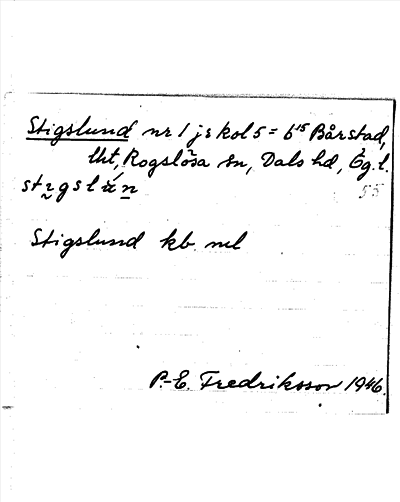 Stigslund nr 1 js kol 5 = 6¹⁵ Bårstad,
Rogslösa sn, Dals hd, Ög. l.
55
Stigslund kb. ml
P.-E. Fredriksson 1946.